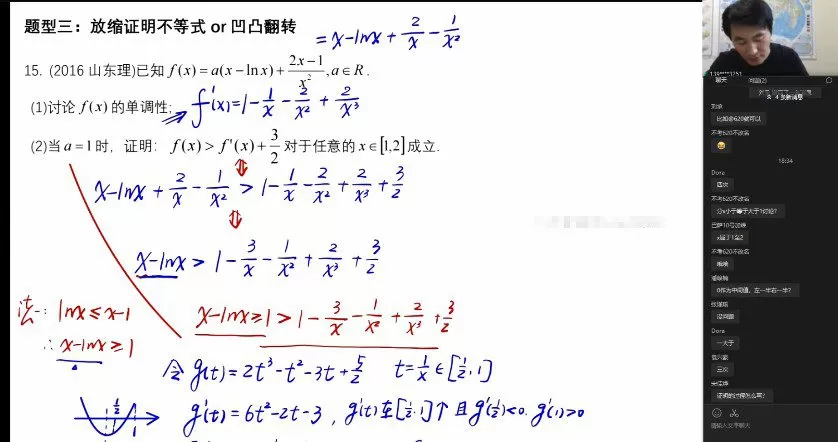 题型三：放缩证明不等式 or 凹凸翻转
= x-lnx+2/x-1/x²
15. (2016 山东理)已知 f(x)=a(x-lnx)+(2x-1)/x², a∈R.
(1)讨论 f(x) 的单调性;
f'(x)=1-1/x-2/x²+2/x³
(2)当 a=1时，证明: f(x)>f'(x)+3/2 对于任意的 x∈[1,2]成立.
x-lnx+2/x-1/x² > 1-1/x-2/x²+2/x³+3/2
x-lnx > 1-3/x-1/x²+2/x³+3/2
法一: lnx≤x-1
x-lnx≥1 > 1-3/x-1/x²+2/x³+3/2
∴ x-lnx≥1
令 g(t)=2t³-t²-3t+5/2 t=1/x∈[1/2,1]
1/2
1
g'(t)=6t²-2t-3, g'(t)在[1/2,1]↑且g'(1/2)<0, g'(1)>0
聊天
问题(2)
4 条新消息
比如余620就可以
不考620不改名
18:34
Dora
四次
不考620不改名
分x小于等于大于1讨论?
x属于1至2
不考620不改名
0作为中间值，左一半右一半?
没问题
Dora
一大于
三次
证明的过程怎么写?